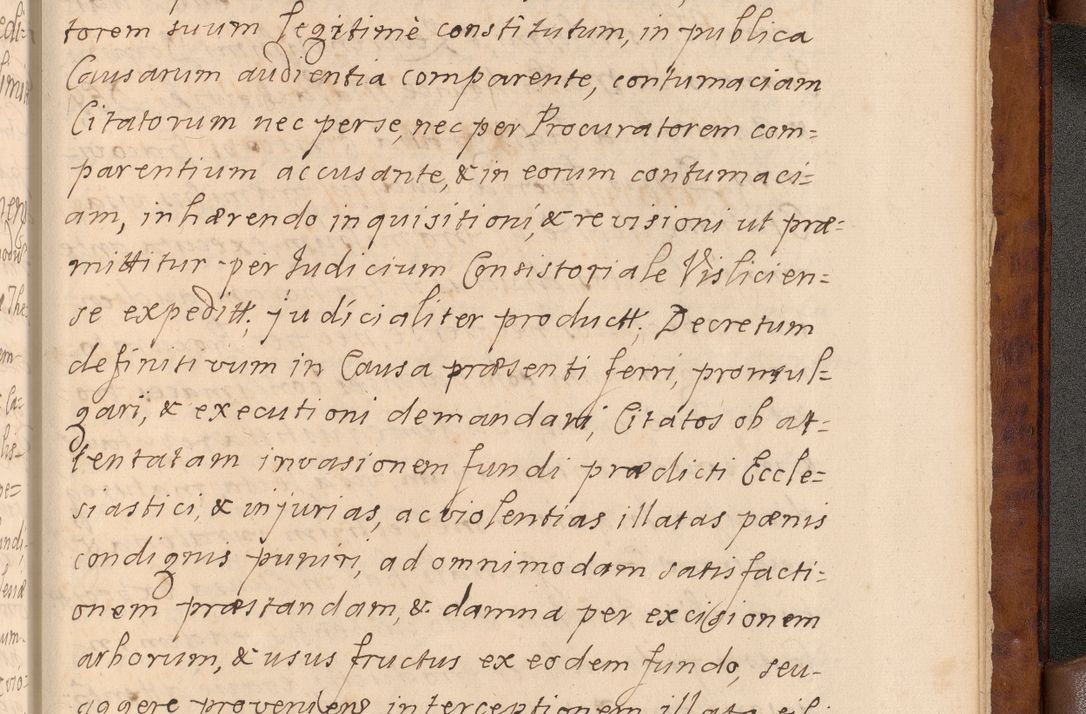 torem suum legitimè constitutum, in publica
Causarum audientia comparente, contumaciam
Citatorum nec per se, nec per Procuratorem com=
parentium accusante, & in eorum contumaci=
am, inhærendo inquisitioni, & revisioni ut præ=
mittitur per Judicium Consistoriale Vislicien=
se expeditt. judicialiter productt. Decretum
definitivum in Causa præsenti ferri, promul=
gari, & executioni demandari, Citatos ob at=
tentatam invasionem fundi prædicti Eccle=
siastici, & injurias, ac violentias illatas pænis
condignis puniri, ad omnimodam satisfacti=
onem præstandam, & damna per excisionem
arborum, & usus fructus ex eodem fundo, seu
aggere proveniens interceptionem illata